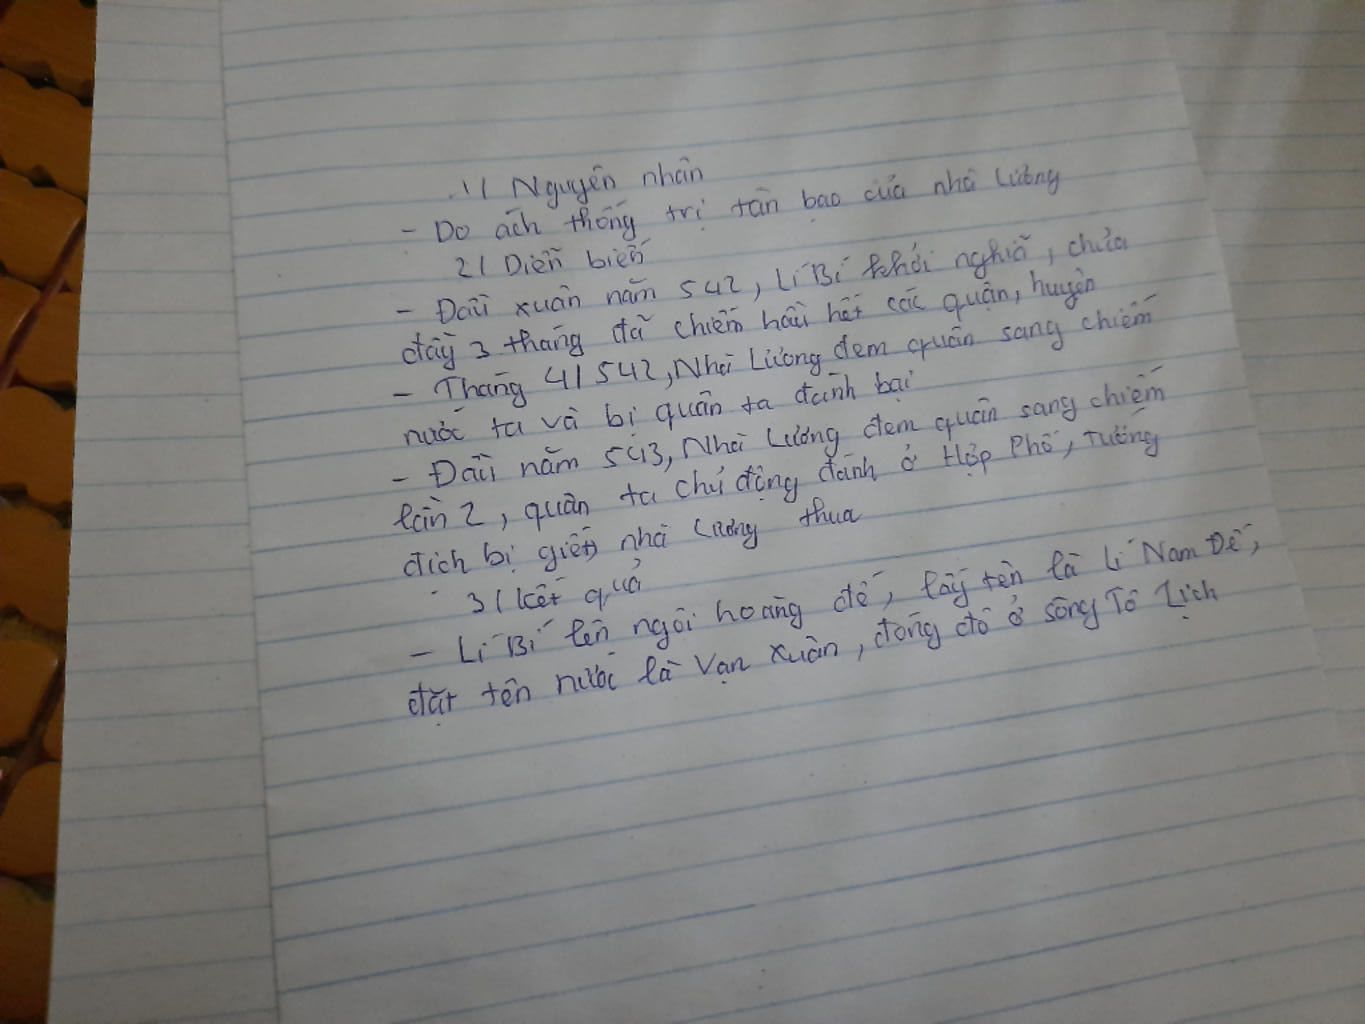 1/ Nguyên nhân
- Do ách thống trị tàn bạo của nhà Lương
2/ Diễn biến
- Đầu xuân năm 542, Lí Bí khởi nghĩa, chưa
đầy 3 tháng đã chiếm hầu hết các quận, huyện
- Tháng 4/542, Nhà Lương đem quân sang chiếm
nước ta và bị quân ta đánh bại
- Đầu năm 543, Nhà Lương đem quân sang chiếm
lần 2, quân ta chủ động đánh ở Hợp Phố, tướng
địch bị giết, nhà Lương thua
3/ Kết quả
- Lí Bí lên ngôi hoàng đế, lấy tên là Lí Nam Đế,
đặt tên nước là Vạn Xuân, đóng đô ở sông Tô Lịch